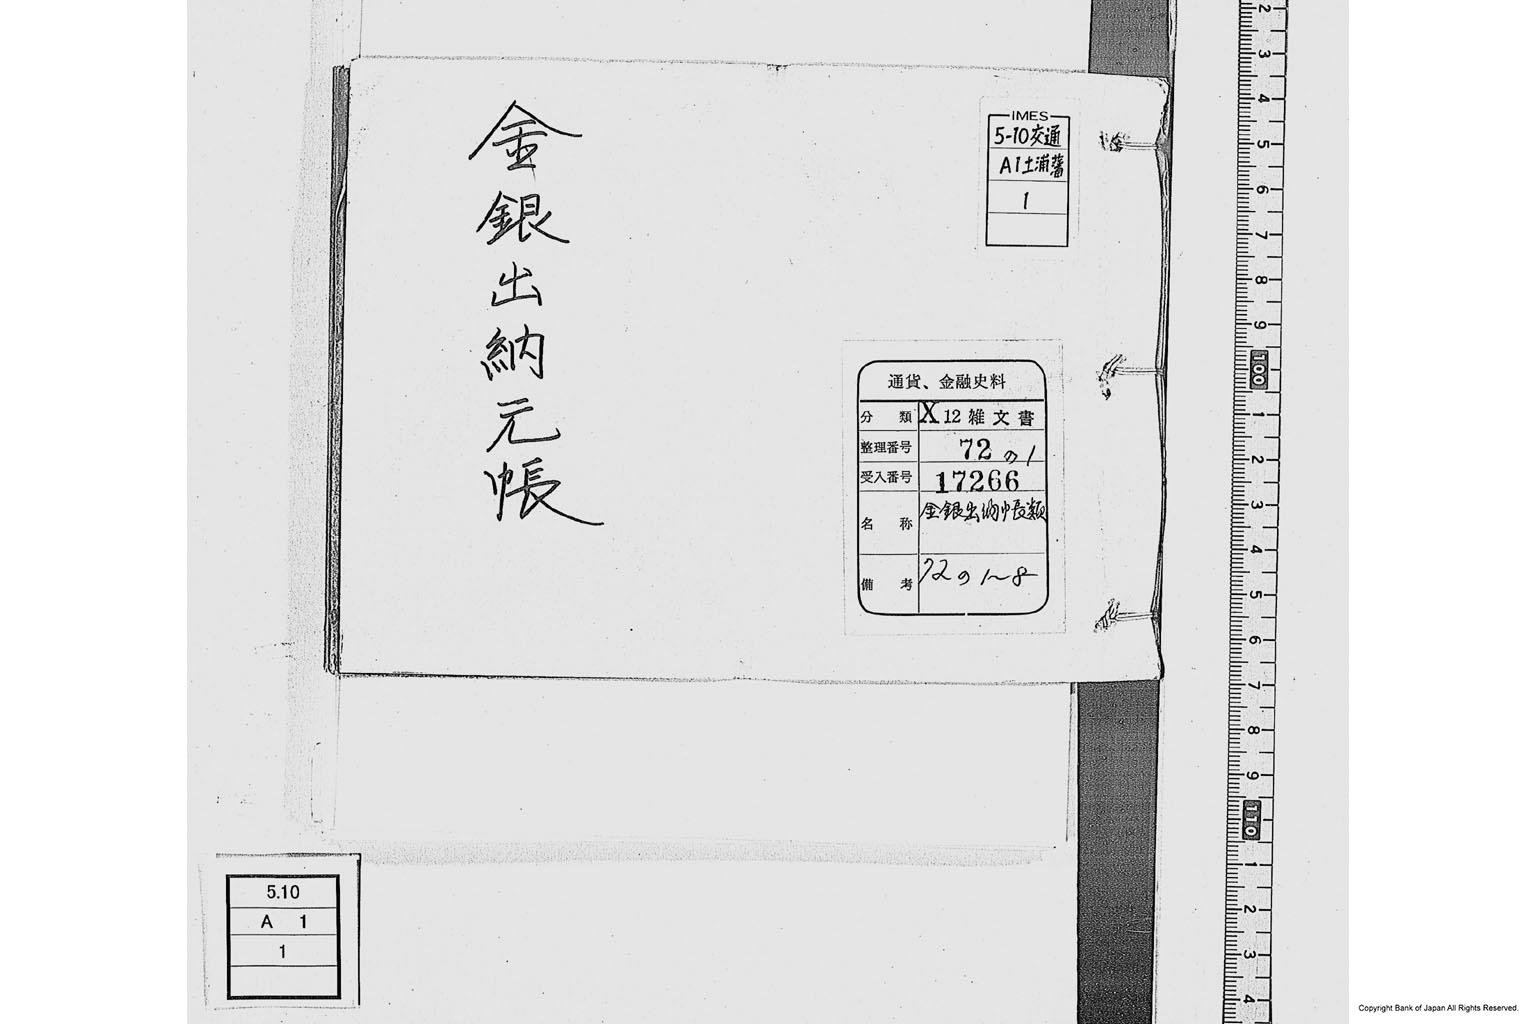 金銀出納元帳
IMES
5-10交通
A1土浦藩
1
通貨、金融史料
分類 X12雑文書
整理番号 72の1
受入番号 17266
名称 金銀出納帳類
備考 72の1~8
5.10
A 1
1
2
3
4
5
6
7
8
9
100
1
2
3
4
5
6
7
8
9
110
1
2
3
4
Copyright Bank of Japan All Rights Reserved.